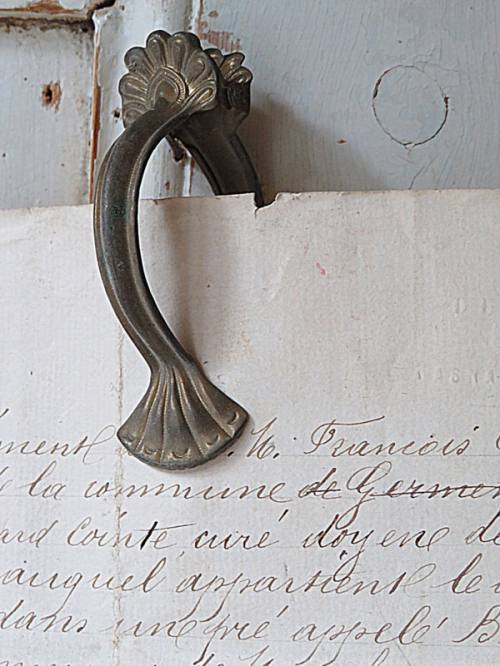 M. Francois
la commune de Germe
ard Cointe, curé doyené de
auquel appartient le
dans une pré appelé B